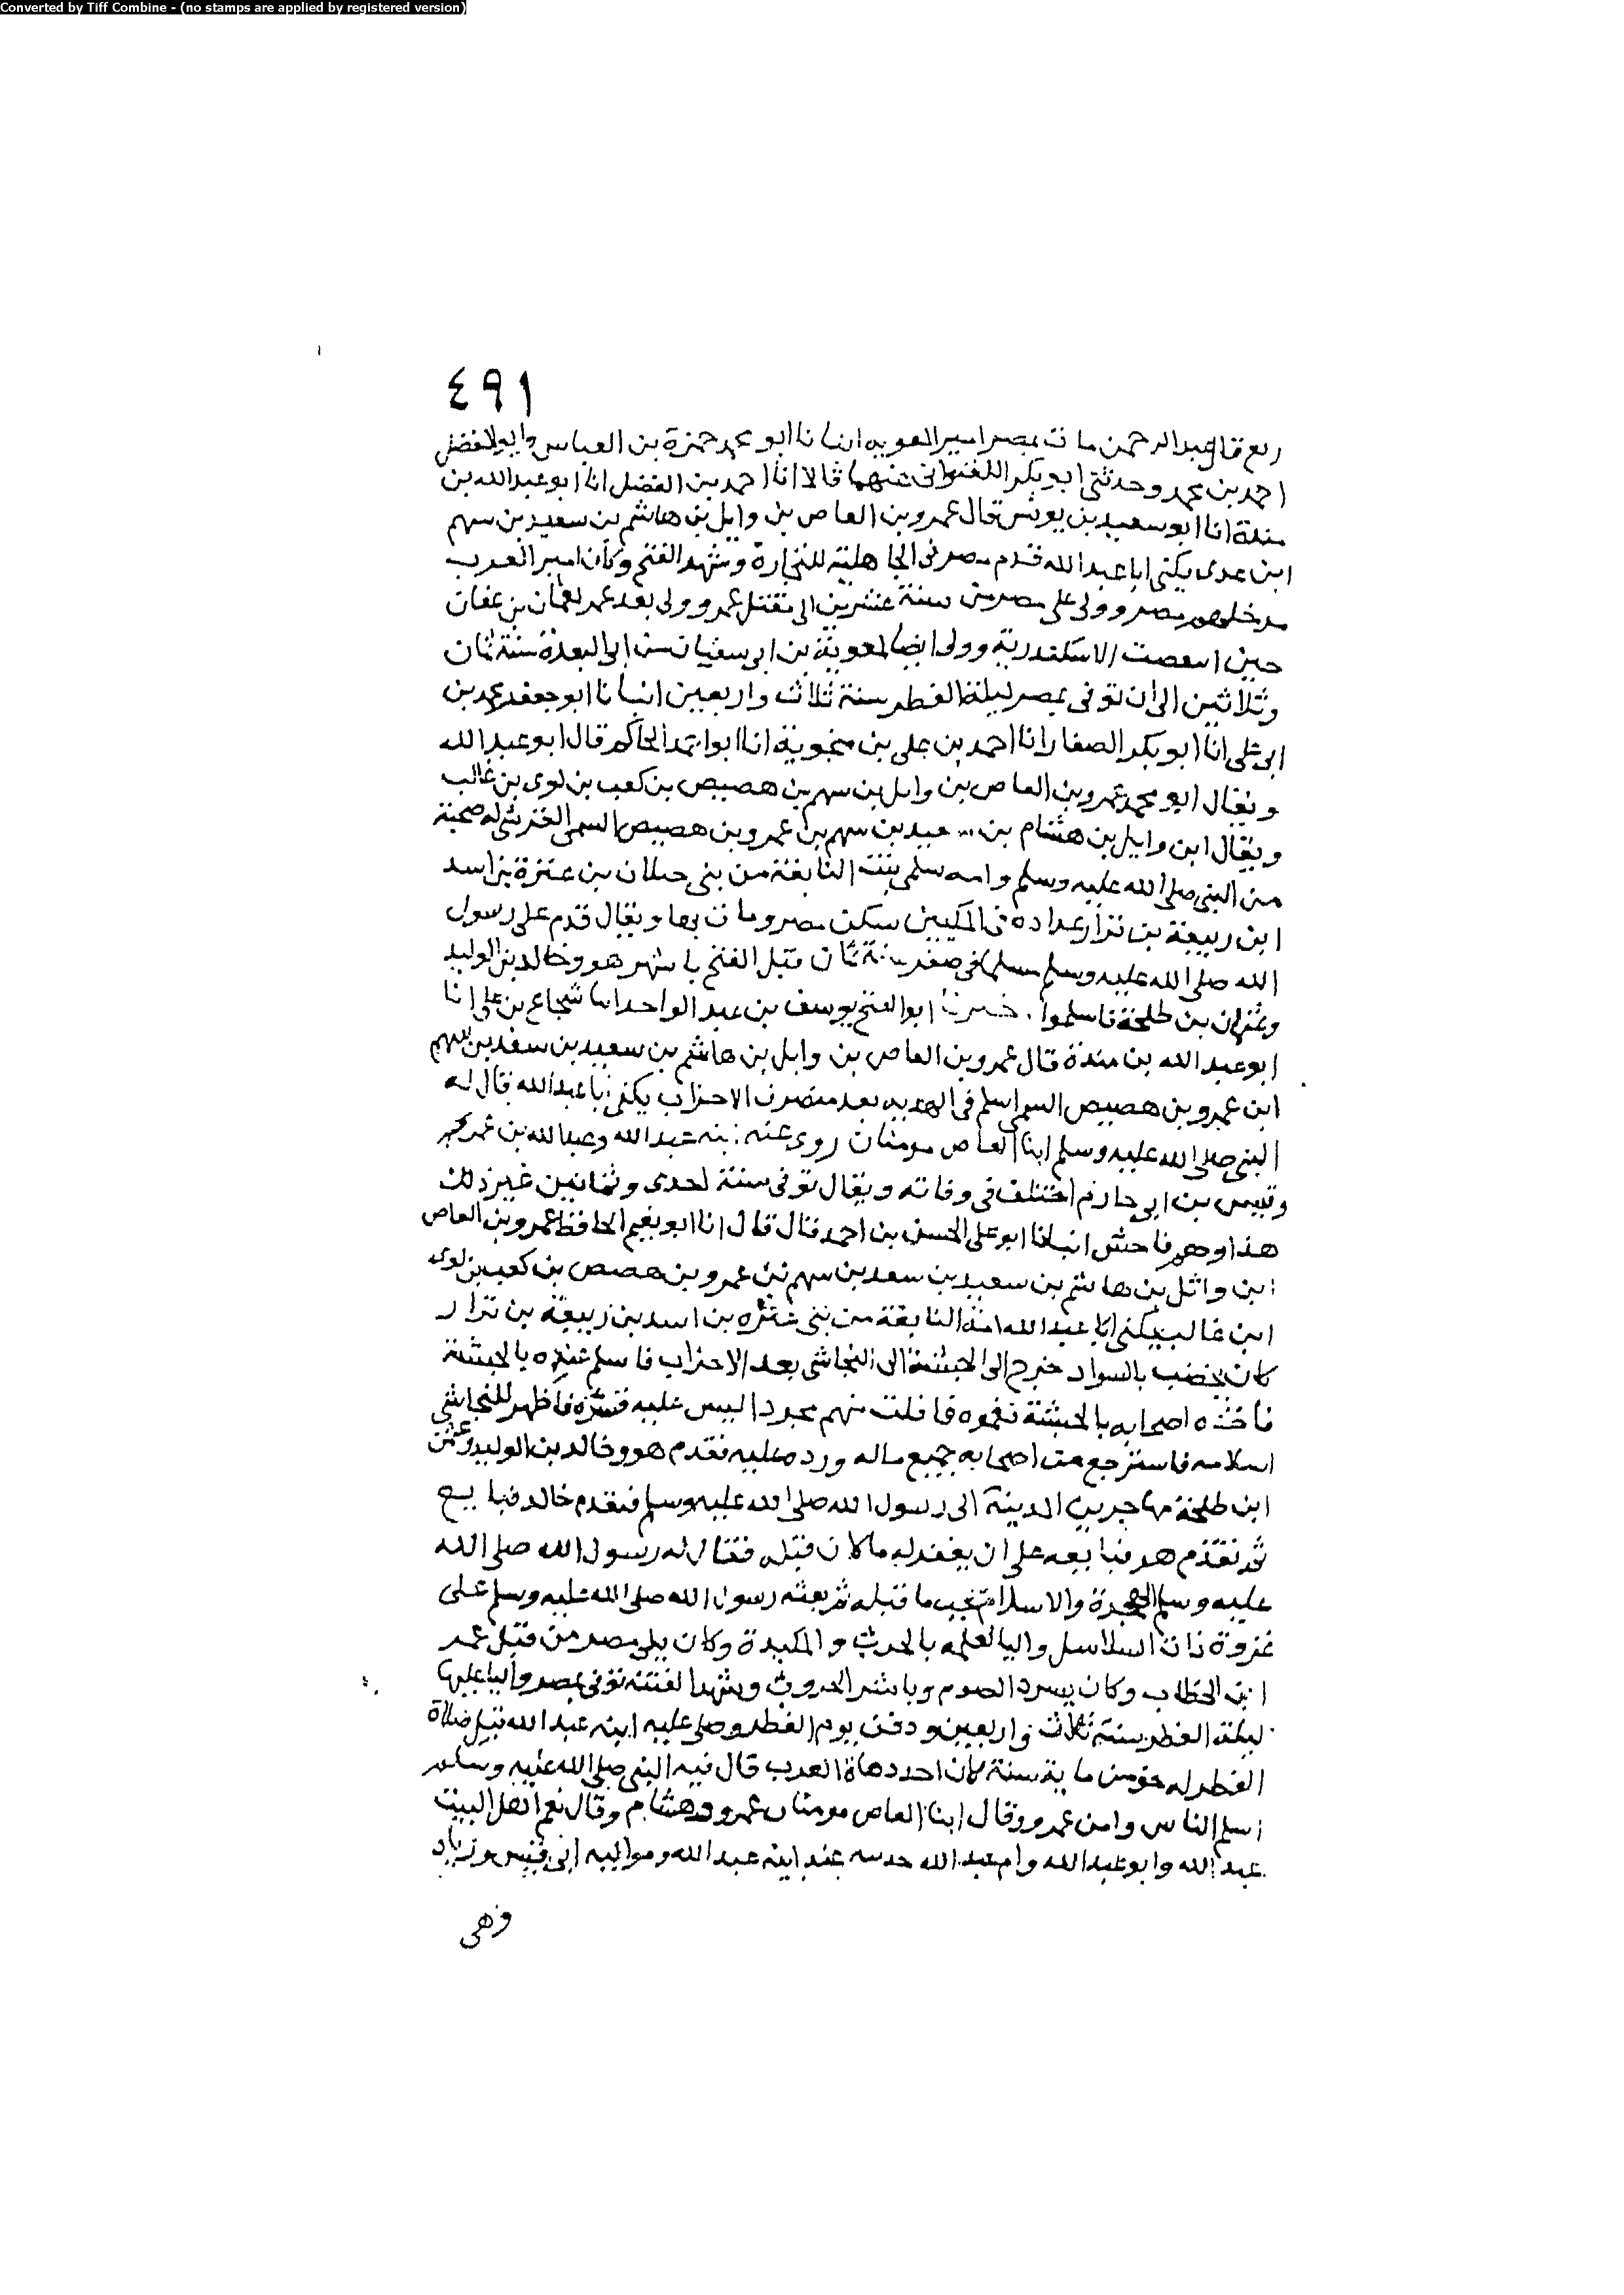 Converted by Tiff Combine - (no stamps are applied by registered version)
٤٩١
ربع قال عبد الرحمن مات بمصر امير المعويه انبانا ابو محمد حمزة بن العباس وابو الفضل
احمد بن محمد وحدثنى ابو بكر اللفتوانى عنهما قالا انا احمد بن الفضل انا ابو عبد الله بن
مندة انا ابو سعيد بن يونس قال عمرو بن العاص بن وايل بن هاشم بن سعيد بن سهم
ابن عدى يكنى ابا عبد الله قدم مصر فى الجاهلية للتجارة وشهد الفتح وكان امير العرب
مدخلهم مصر وولى على مصر من سنة عشرين الى مقتل عمر وولى بعد عمر لعثمان بن عفان
حين الاسكندرية وولى ايضا لمعوية بن ابى سفيان من ذى القعدة سنة ثمان
وثلاثين الى ان توفى بمصر ليلة الفطر سنة ثلاث واربعين انبانا ابو جعفر محمد بن
ابى على انا ابو بكر الصفار انا احمد بن على بن منجوية انا ابو احمد الحاكم قال ابو عبد الله
ويقال ابو محمد عمرو بن العاص بن وايل بن سهم بن هصيص بن كعب بن لوى بن غالب
ويقال ابن وايل بن هشام بن ... عيد بن سهم بن عمرو بن هصيص السهمى القرشى له صحبة
من النبى صلى الله عليه وسلم وامه سلمى بنت النابغة من بنى جلان بن عنزة بن اسد
ابن ربيعة بن نزار عداده فى المكيين سكن مصر ومات بها ويقال قدم على رسول
الله صلى الله عليه وسلم مسلما فى صفر سنة ثمان قبل الفتح باشهر هو وخالد بن الوليد
وعثمان بن طلحة فاسلموا . خبرنا ابو الفتح يوسف بن عبد الواحد انا شجاع بن على انا
ابو عبد الله بن مندة قال عمرو بن العاص بن وايل بن هاشم بن سعيد بن سعد بن سهم
ابن عمرو بن هصيص السهمى اسلم فى الهدبيه بعد منصرف الاحزاب يكنى ابا عبد الله قال له
النبى صلى الله عليه وسلم ابنا العاص مومنان روى عنه ابنه عبد الله وعبد الله بن عمر
وقيس بن ابى حازم اختلف فى وفاته ويقال توفى سنة احدى وثمانين غير ذلك
هذا وهم فاحش انبانا ابو على الحسن بن احمد قال قال انا ابو نعيم الحافظ عمرو بن العاص
ابن وائل بن هاشم بن سعيد بن سعد بن سهم بن عمرو بن هصيص بن كعب بن لوى
ابن غالب يكنى ابا عبد الله امه النابغة من بنى عنزه بن اسد بن ربيعة بن نزار
كان يخضب بالسواد خرج الى الحبشة الى النجاشى بعد الاحزاب فاسلم عنده بالحبشة
فاخذه اصحابه بالحبشة فغموه فافلت منهم مجردا ليس عليه قشره فاظهر للنجاشى
اسلامه فاسترجع من اصحابه جميع ماله ورده عليه فقدم هو وخالد بن الوليد وعثمن
ابن طلحة مهاجرين المدينة الى رسول الله صلى الله عليه وسلم فتقدم خالد فبايع
ثم تقدم هو فبايعه على ان يغفر له ما كان قبله فقال له رسول الله صلى الله
عليه وسلم الهجرة والاسلام يجب ما قبله ثم بعثه رسول الله صلى الله عليه وسلم على
غزوة ذات السلاسل واليا لعلمه بالحرب والمكيدة وكان يلى مصر من قبل عمر
ابن الخطاب وكان يسرد الصوم وباشر الحروب وشهد الفتنة توفى بمصر واليا عليها
ليلة الفطر سنة ثلاث واربعين ودفن يوم الفطر وصلى عليه ابنه عبد الله قبل صلاة
الفطر له نحو من ماية سنة كان احد دهاة العرب قال فيه النبى صلى الله عليه وسلم
اسلم الناس وامن عمرو وقال ابنا العاص مومنان عمرو وهشام وقال نعم اهل البيت
عبد الله وابو عبد الله وام عبد الله حدث عنه ابنه عبد الله ومواليه ابى قيس وزياد
وهى